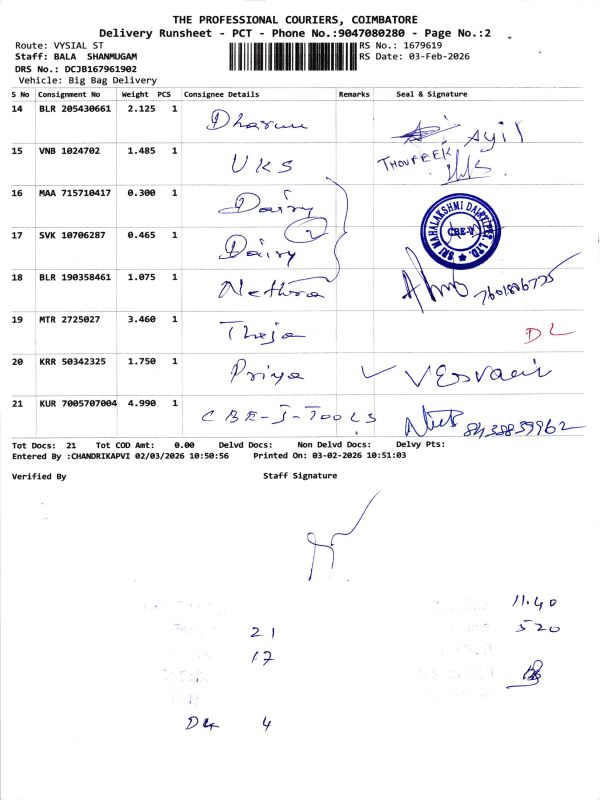 THE PROFESSIONAL COURIERS, COIMBATORE
Delivery Runsheet - PCT - Phone No.:9047080280 - Page No.:2
Route: VYSIAL ST
RS No.: 1679619
Staff: BALA SHANMUGAM
RS Date: 03-Feb-2026
DRS No.: DCJB167961902
Vehicle: Big Bag Delivery
S No Consignment No Weight PCS Consignee Details Remarks Seal & Signature
14 BLR 205430661 2.125 1 Dharun Ayil
15 VNB 1024702 1.485 1 UKS THOUFEEK
16 MAA 715710417 0.300 1 Dairy
17 SVK 10706287 0.465 1 Dairy 2
SRI MAHALAKSHMI DAIRY PVT. LTD. CBE-1
18 BLR 190358461 1.075 1 Nethra
19 MTR 2725027 3.460 1 Theja DL
20 KRR 50342325 1.750 1 Priya
21 KUR 7005707004 4.990 1 CBE-J-TOOLS 8438839962
Tot Docs: 21 Tot COD Amt: 0.00 Delvd Docs: Non Delvd Docs: Delvy Pts:
Entered By :CHANDRIKAPVI 02/03/2026 10:50:56 Printed On: 03-02-2026 10:51:03
Verified By Staff Signature
11.40
21 520
17
4